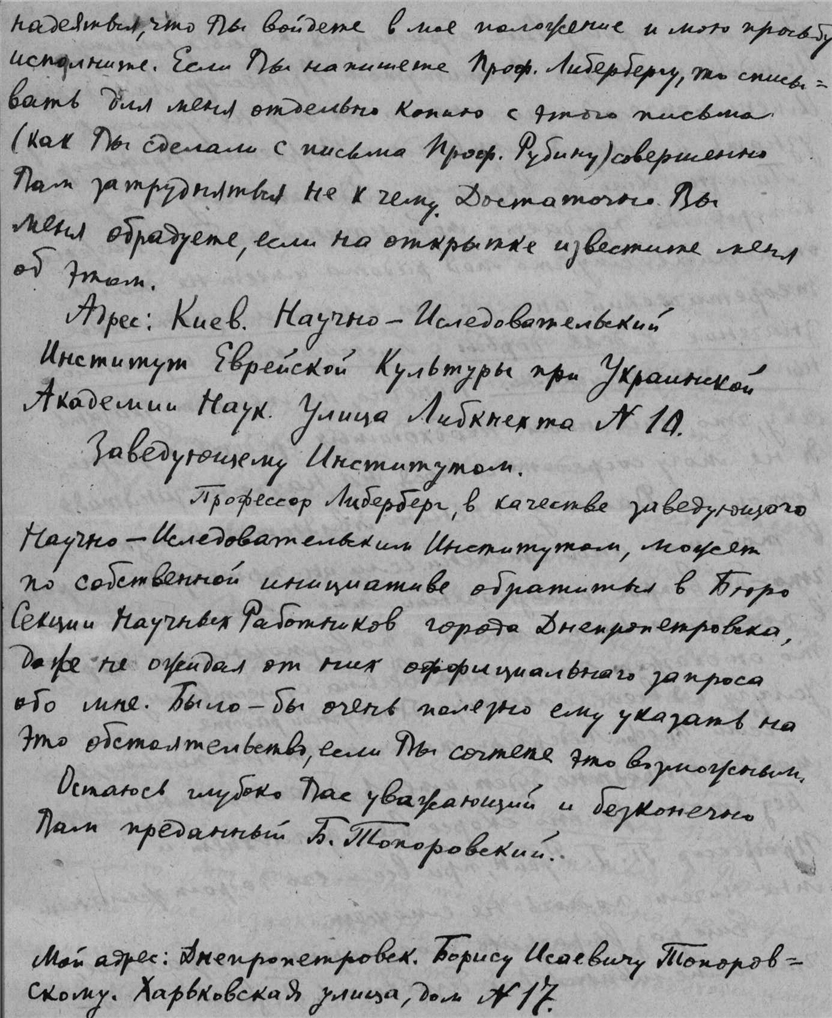 надеяться, что Вы войдете в мое положение и мою просьбу
исполните. Если Вы напишете Проф. Либербергу, то списы=
вать для меня отдельно копию с этого письма
(как Вы сделали с письма Проф. Рубину) совершенно
Вам затрудняться не к чему. Достаточно Вы
меня обрадуете, если на открытке известите меня
об этом.
Адрес: Киев. Научно-Иследовательский
Институт Еврейской Культуры при Украинской
Академии Наук. Улица Либкнехта № 10.
Заведующему Институтом.
Профессор Либерберг, в качестве заведующаго
Научно-Иследовательским Институтом, может
по собственной инициативе обратиться в Бюро
Секции Научных Работников города Днепропетровска,
даже не ожидая от них оффициального запроса
обо мне. Было-бы очень полезно ему указать на
это обстоятельство, если Вы сочтете это возможным.
Остаюсь глубоко Вас уважающий и безконечно
Вам преданный Б. Топоровский.
Мой адрес: Днепропетровск. Борису Исаевичу Топоров=
скому. Харьковская улица, дом № 17.